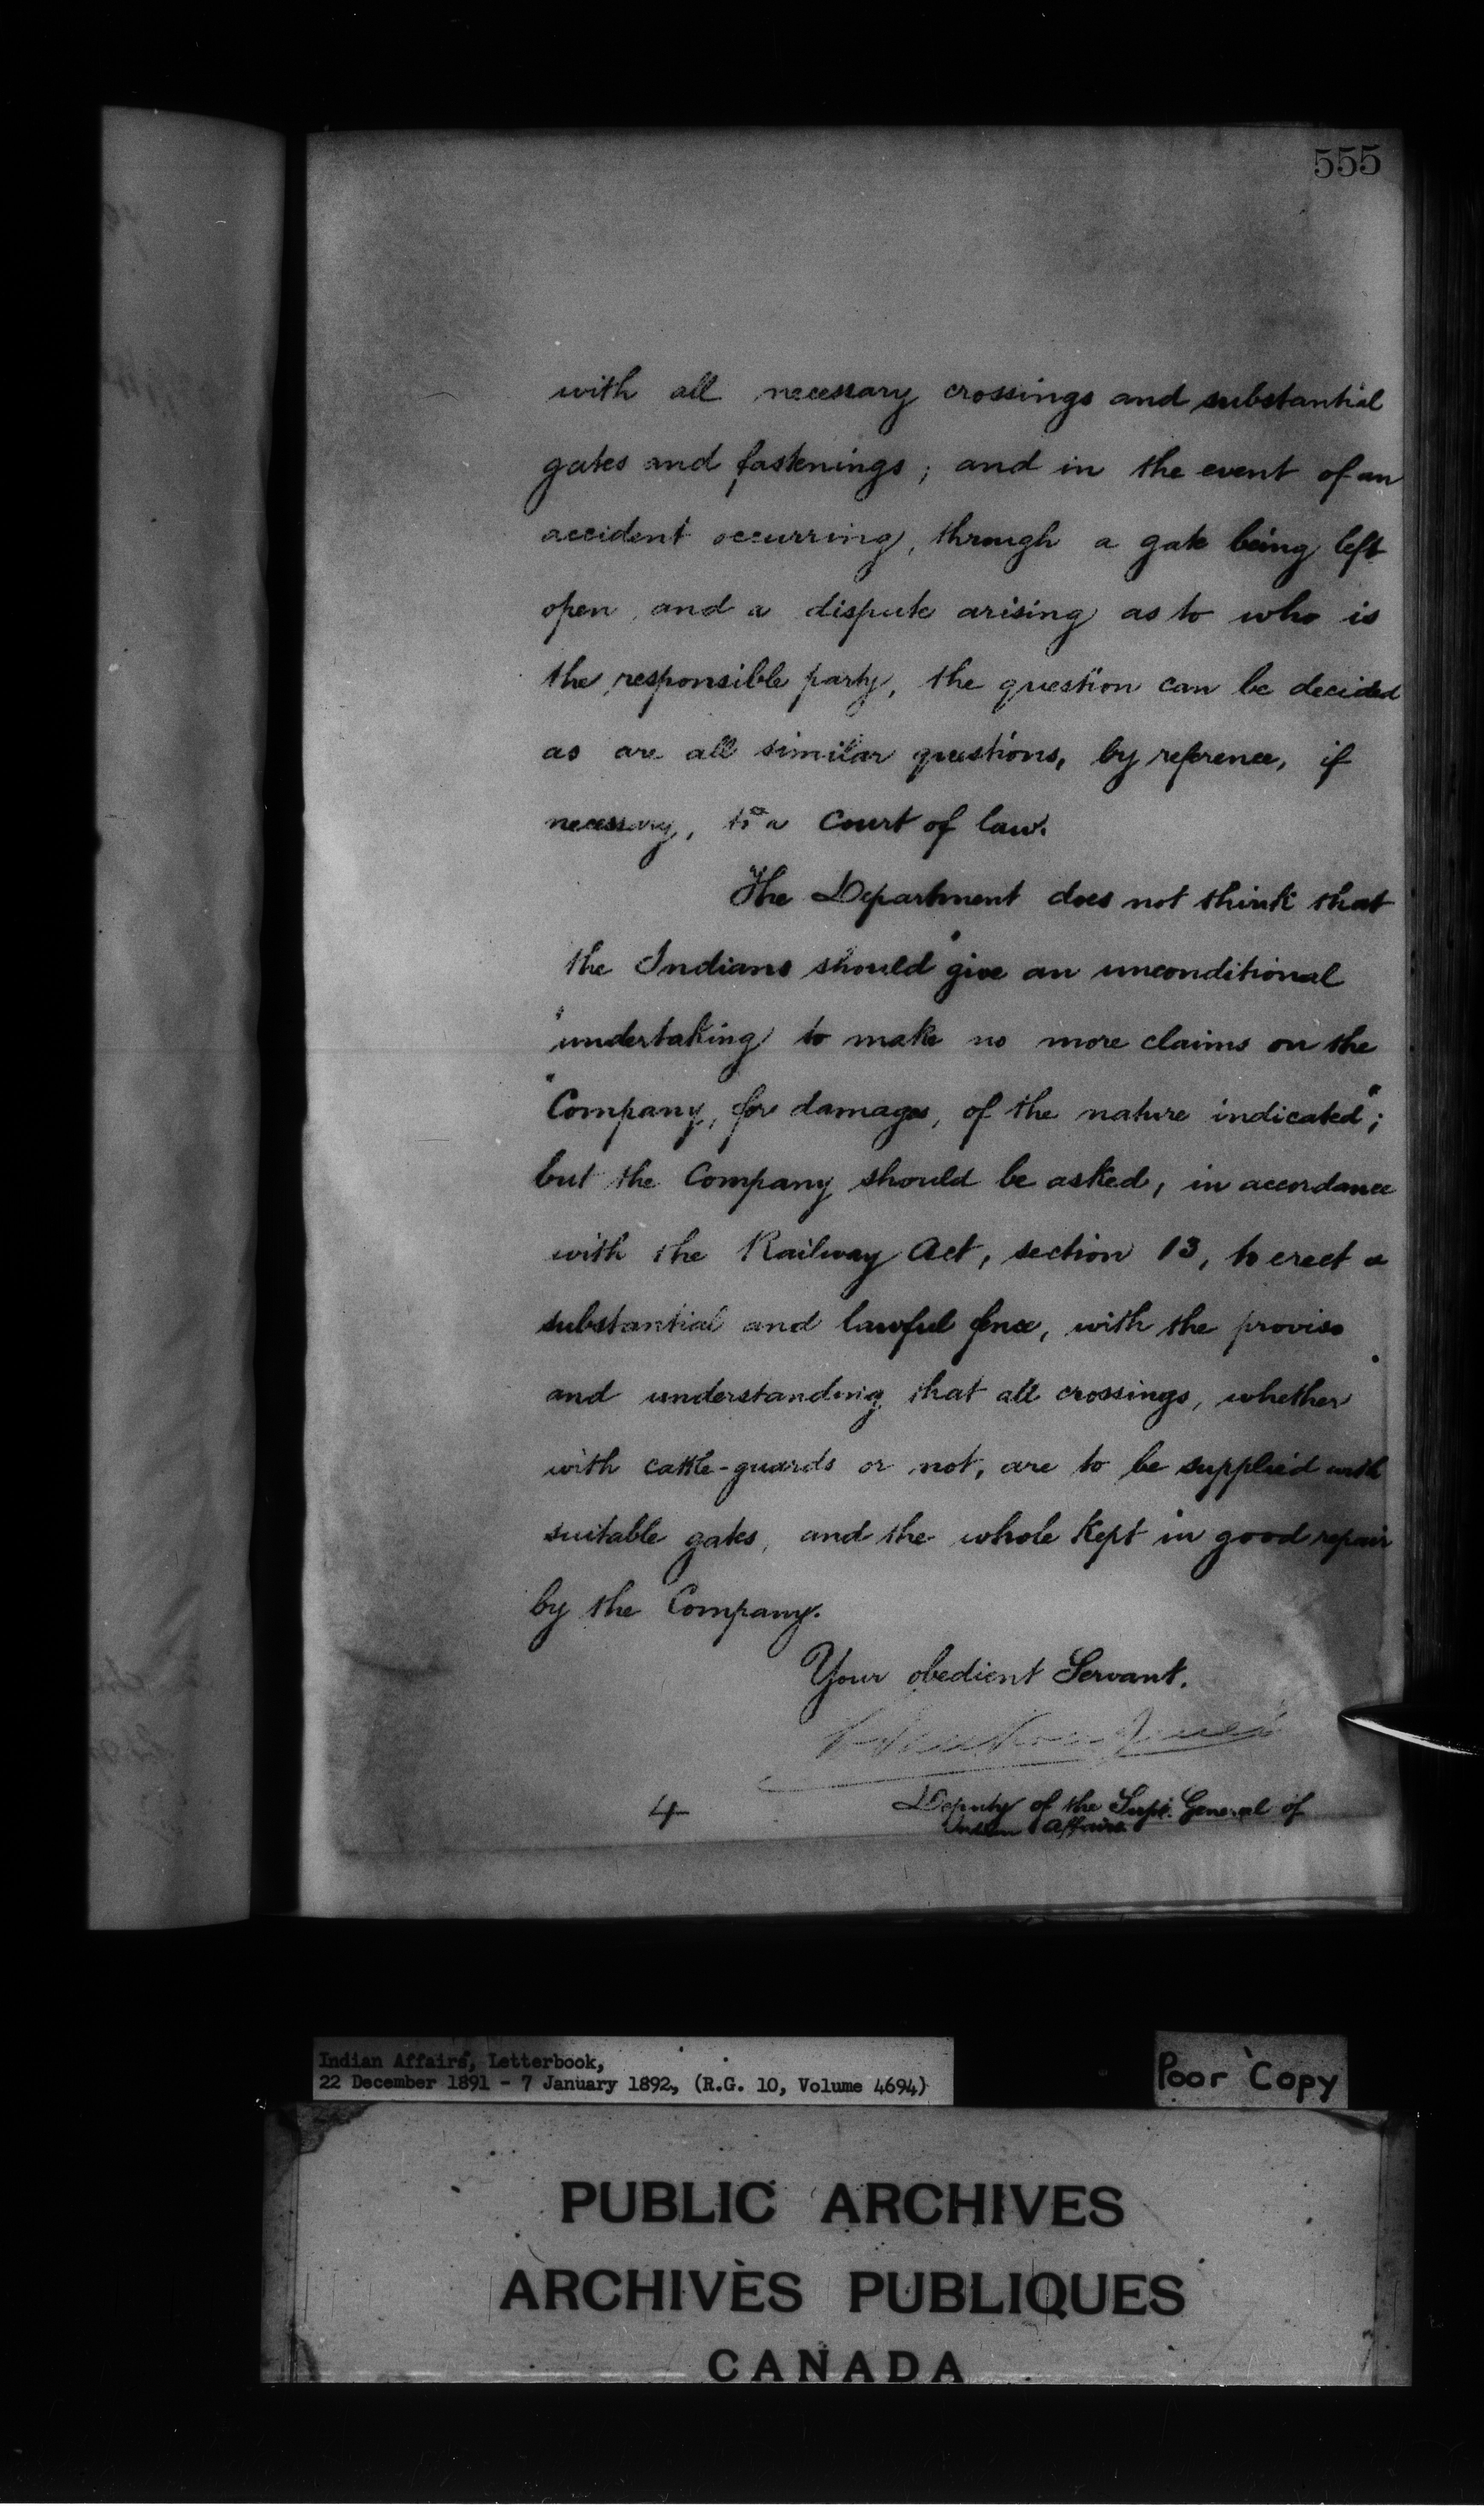 555
with all necessary crossings and substantial
gates and fastenings; and in the event of an
accident occurring, through a gate being left
open, and a dispute arising as to who is
the responsible party, the question can be decided
as are all similar questions, by reference, if
necessary, to a Court of law.
The Department does not think that
the Indians should "give an unconditional
"undertaking to make no more claims on the
"Company, for damages, of the nature indicated";
but the Company should be asked, in accordance
with the Railway Act, section 13, to erect a
substantial and lawful fence, with the proviso
and understanding that all crossings, whether
with cattle-guards or not, are to be supplied with
suitable gates, and the whole kept in good repair
by the Company.
Your obedient Servant.
4
Deputy of the Supt. General of
Indian Affairs.
Indian Affairs, Letterbook,
22 December 1891 - 7 January 1892, (R.G. 10, Volume 4694)
Poor Copy
PUBLIC ARCHIVES
ARCHIVES PUBLIQUES
CANADA